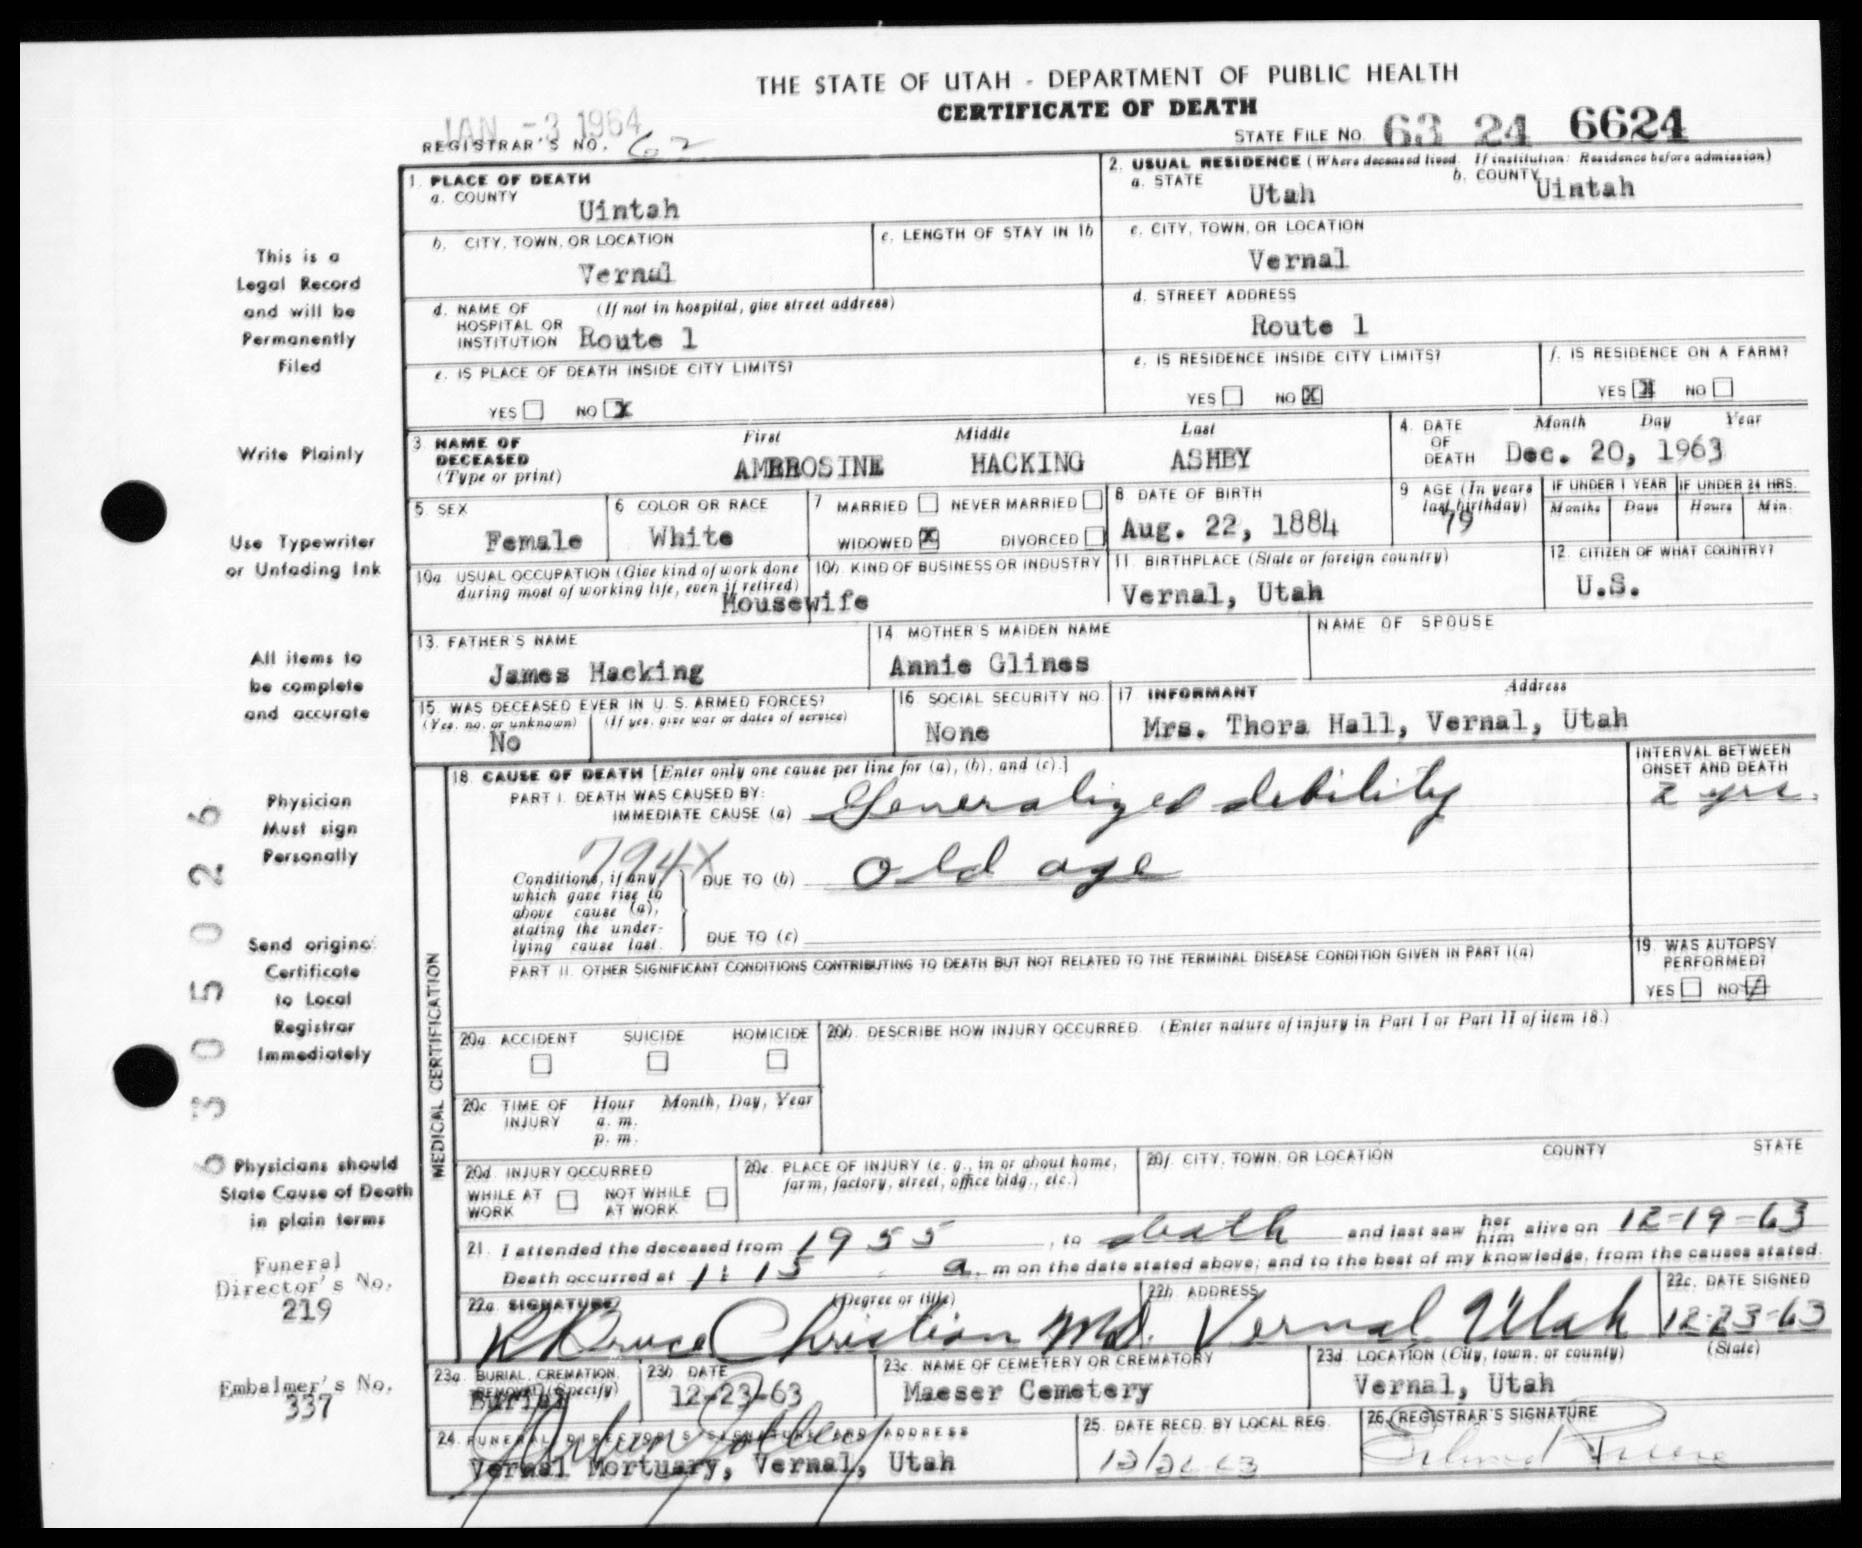 THE STATE OF UTAH - DEPARTMENT OF PUBLIC HEALTH
CERTIFICATE OF DEATH
JAN -3 1964
REGISTRAR'S NO. 62
STATE FILE NO. 63 24 6624
1. PLACE OF DEATH
a. COUNTY
Uintah
2. USUAL RESIDENCE (Where deceased lived. If institution: Residence before admission)
a. STATE
Utah
b. COUNTY
Uintah
b. CITY, TOWN, OR LOCATION
Vernal
c. LENGTH OF STAY IN 1b
c. CITY, TOWN, OR LOCATION
Vernal
d. NAME OF HOSPITAL OR INSTITUTION
(If not in hospital, give street address)
Route 1
d. STREET ADDRESS
Route 1
e. IS PLACE OF DEATH INSIDE CITY LIMITS?
YES NO X
e. IS RESIDENCE INSIDE CITY LIMITS?
YES NO X
f. IS RESIDENCE ON A FARM?
YES X NO
3. NAME OF DECEASED
(Type or print)
First Middle Last
AMBROSINE HACKING ASHBY
4. DATE OF DEATH
Month Day Year
Dec. 20, 1963
5. SEX
Female
6 COLOR OR RACE
White
7 MARRIED NEVER MARRIED
WIDOWED X DIVORCED
8 DATE OF BIRTH
Aug. 22, 1884
9 AGE (In years last birthday)
79
IF UNDER 1 YEAR
Months Days
IF UNDER 24 HRS.
Hours Min.
10a USUAL OCCUPATION (Give kind of work done during most of working life, even if retired)
Housewife
10b. KIND OF BUSINESS OR INDUSTRY
11. BIRTHPLACE (State or foreign country)
Vernal, Utah
12. CITIZEN OF WHAT COUNTRY?
U.S.
13. FATHER'S NAME
James Hacking
14. MOTHER'S MAIDEN NAME
Annie Glines
NAME OF SPOUSE
15. WAS DECEASED EVER IN U. S. ARMED FORCES?
(Yes, no, or unknown) (If yes, give war or dates of service)
No
16. SOCIAL SECURITY NO.
None
17 INFORMANT Address
Mrs. Thora Hall, Vernal, Utah
MEDICAL CERTIFICATION
18. CAUSE OF DEATH [Enter only one cause per line for (a), (b), and (c).]
INTERVAL BETWEEN ONSET AND DEATH
PART I. DEATH WAS CAUSED BY:
IMMEDIATE CAUSE (a) Generalized debility
2 yrs.
794X
Conditions, if any, which gave rise to above cause (a), stating the underlying cause last.
DUE TO (b) old age
DUE TO (c)
PART II. OTHER SIGNIFICANT CONDITIONS CONTRIBUTING TO DEATH BUT NOT RELATED TO THE TERMINAL DISEASE CONDITION GIVEN IN PART I(a)
19. WAS AUTOPSY PERFORMED?
YES NO
20a. ACCIDENT SUICIDE HOMICIDE
20b. DESCRIBE HOW INJURY OCCURRED. (Enter nature of injury in Part I or Part II of item 18.)
20c. TIME OF INJURY
Hour Month, Day, Year
a. m.
p. m.
20d. INJURY OCCURRED
WHILE AT WORK NOT WHILE AT WORK
20e. PLACE OF INJURY (e. g., in or about home, farm, factory, street, office bldg., etc.)
20f. CITY, TOWN, OR LOCATION COUNTY STATE
21. I attended the deceased from 1955, to death and last saw her him alive on 12-19-63
Death occurred at 1:15 a. m on the date stated above; and to the best of my knowledge, from the causes stated.
22a. SIGNATURE (Degree or title)
R Bruce Christian MD.
22b. ADDRESS
Vernal Utah
22c. DATE SIGNED
12-23-63
23a. BURIAL, CREMATION, REMOVAL (Specify)
Burial
23b. DATE
12-23-63
23c. NAME OF CEMETERY OR CREMATORY
Maeser Cemetery
23d. LOCATION (City, town, or county) (State)
Vernal, Utah
24. FUNERAL DIRECTOR'S SIGNATURE AND ADDRESS
Vernal Mortuary, Vernal, Utah
25. DATE RECD. BY LOCAL REG.
26. REGISTRAR'S SIGNATURE
This is a
Legal Record
and will be
Permanently
Filed
Write Plainly
Use Typewriter
or Unfading Ink
All items to
be complete
and accurate
Physician
Must sign
Personally
Send original
Certificate
to Local
Registrar
Immediately
Physicians should
State Cause of Death
in plain terms
Funeral
Director's No.
219
Embalmer's No.
337
6305026